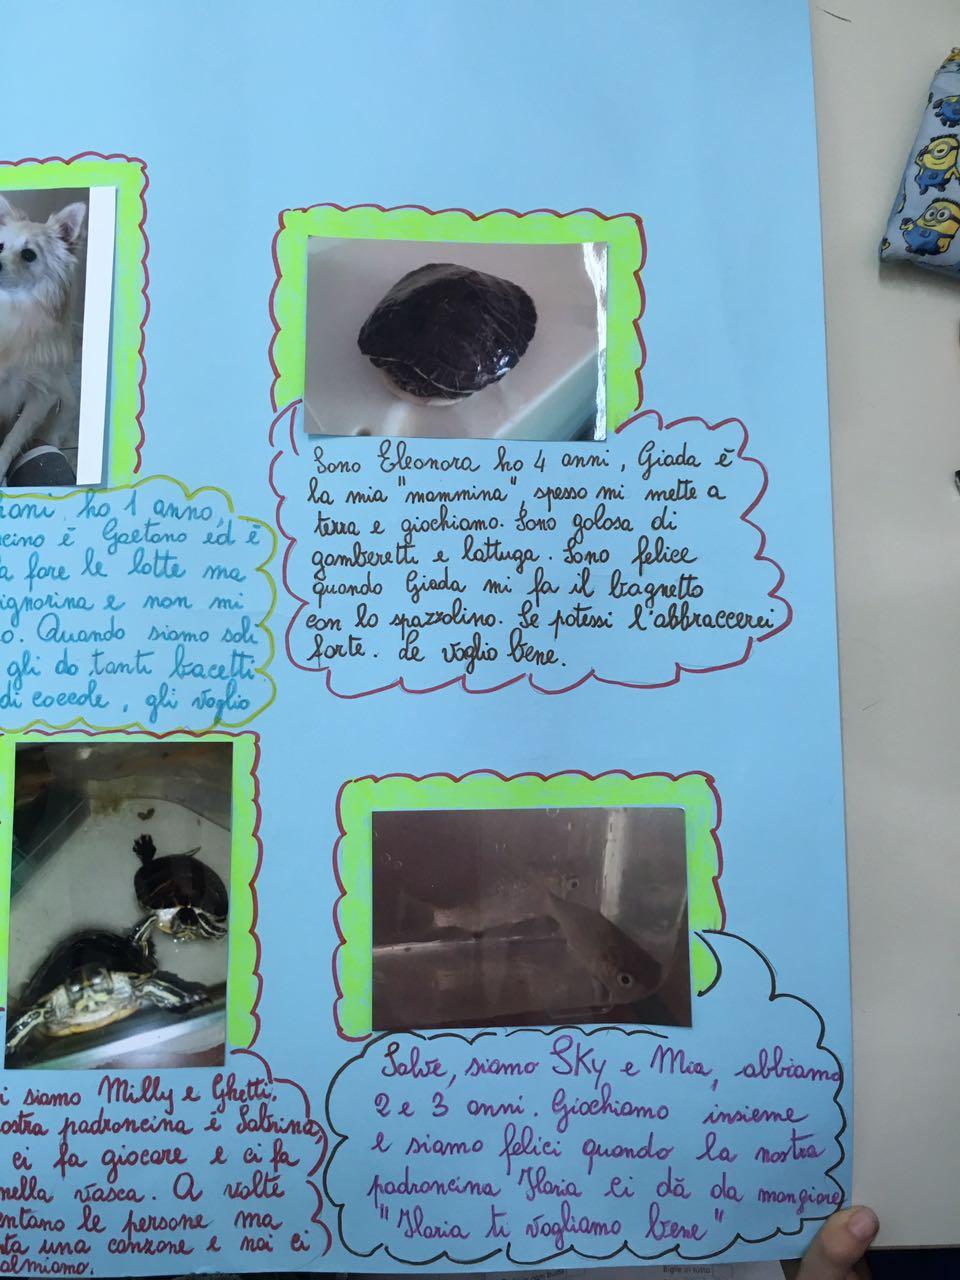 Sono Eleonora ho 4 anni, Giada è
la mia "mammina", spesso mi mette a
terra e giochiamo. Sono golosa di
gamberetti e lattuga. Sono felice
quando Giada mi fa il bagnetto
con lo spazzolino. Se potessi l'abbraccerei
forte. Le voglio bene.
ho 1 anno,
è Gaetano ed è
fare le lotte ma
e non mi
Quando siamo soli
gli do tanti bacetti
di coccole, gli voglio
siamo Milly e Ghetti.
padroncina è Sabrina,
ci fa giocare e ci fa
nella vasca. A volte
le persone ma
una canzone e noi ci
Salve, siamo Sky e Mia, abbiamo
2 e 3 anni. Giochiamo insieme
e siamo felici quando la nostra
padroncina Ilaria ci dà da mangiare
"Ilaria ti vogliamo bene"